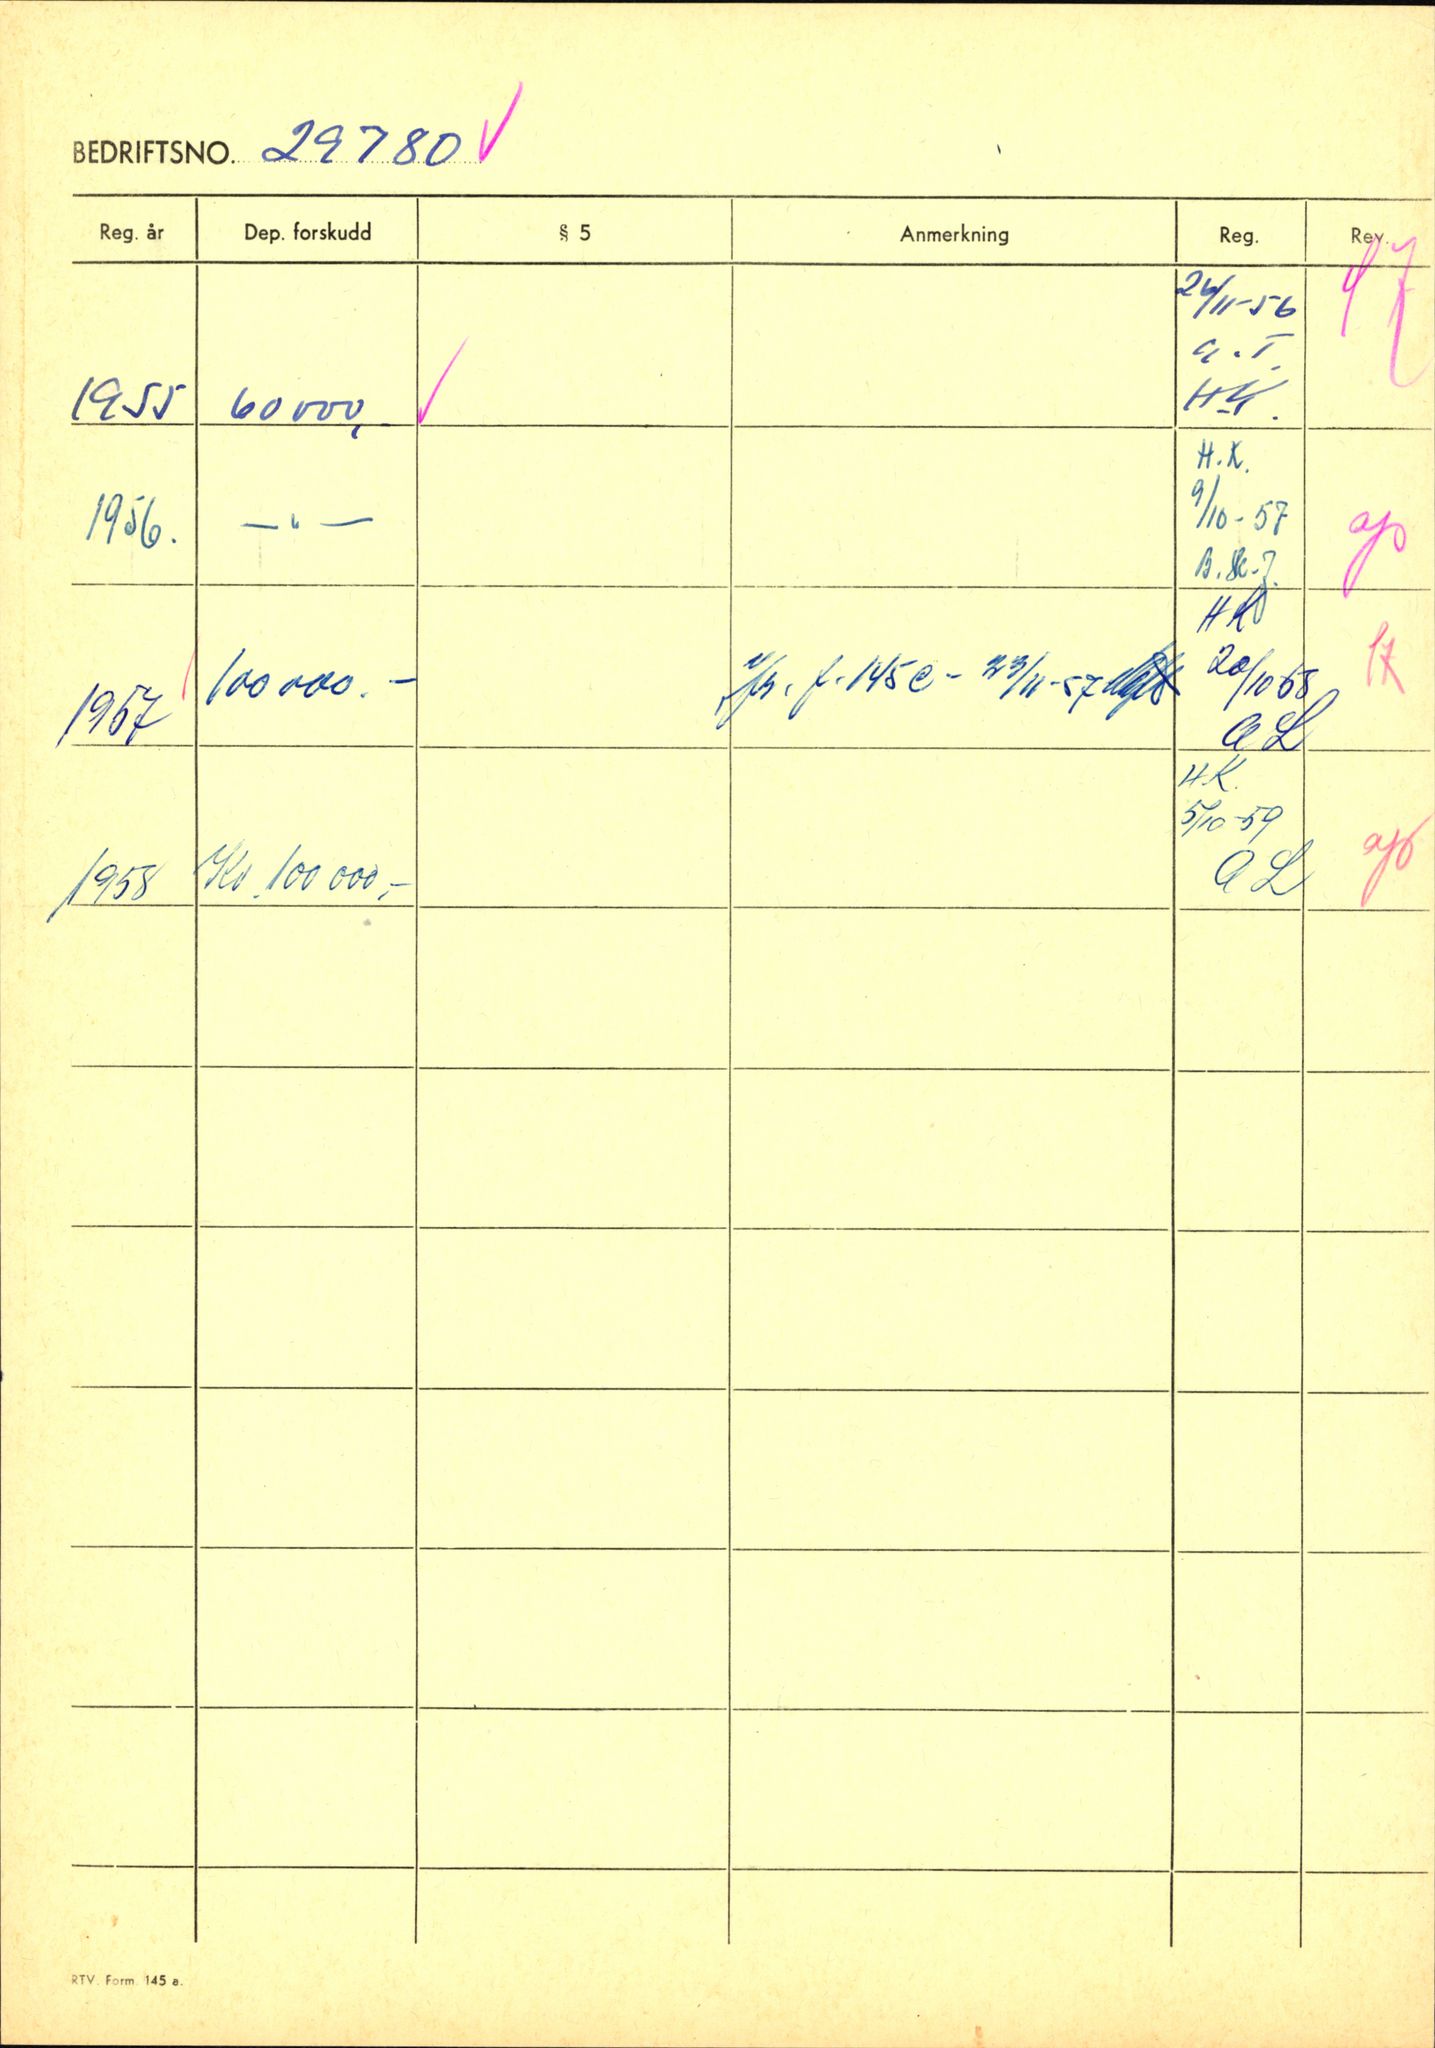 BEDRIFTSNO. 29780
Reg. år Dep. forskudd § 5 Anmerkning Reg. Rev.
26/11-56
a.T.
1955 60000,- H.K.
H.K.
1956. —"— 9/10-57
HK
1957 100000.- f. 145 e - 23/11-57 20/10-58
a L
H.K.
5/10-59
1958 Kr. 100 000,- a L
RTV. Form. 145 a.